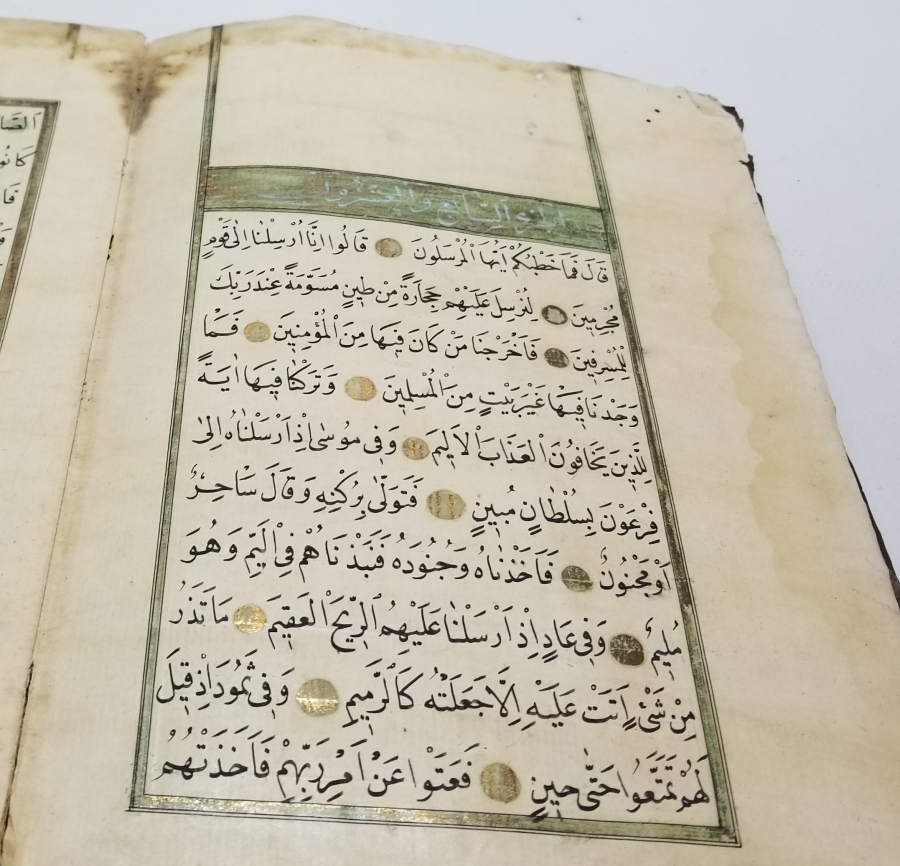 الجزء السابع والعشرون
قَالَ فَمَا خَطْبُكُمْ اَيُّهَا الْمُرْسَلُونَ قَالُوا اِنَّا اُرْسِلْنَا اِلٰى قَوْمٍ
مُجْرِمِينَ لِنُرْسِلَ عَلَيْهِمْ حِجَارَةً مِنْ طِينٍ مُسَوَّمَةً عِنْدَ رَبِّكَ
لِلْمُسْرِفِينَ فَاَخْرَجْنَا مَنْ كَانَ فِيهَا مِنَ الْمُؤْمِنِينَ فَمَا
وَجَدْنَا فِيهَا غَيْرَ بَيْتٍ مِنَ الْمُسْلِمِينَ وَتَرَكْنَا فِيهَا اٰيَةً
لِلَّذِينَ يَخَافُونَ الْعَذَابَ الْاَلِيمَ وَفِي مُوسٰى اِذْ اَرْسَلْنَاهُ اِلٰى
فِرْعَوْنَ بِسُلْطَانٍ مُبِينٍ فَتَوَلّٰى بِرُكْنِهِ وَقَالَ سَاحِرٌ
اَوْ مَجْنُونٌ فَاَخَذْنَاهُ وَجُنُودَهُ فَنَبَذْنَاهُمْ فِي الْيَمِّ وَهُوَ
مُلِيمٌ وَفِي عَادٍ اِذْ اَرْسَلْنَا عَلَيْهِمُ الرِّيحَ الْعَقِيمَ مَا تَذَرُ
مِنْ شَيْءٍ اَتَتْ عَلَيْهِ اِلَّا جَعَلَتْهُ كَالرَّمِيمِ وَفِي ثَمُودَ اِذْ قِيلَ
لَهُمْ تَمَتَّعُوا حَتّٰى حِينٍ فَعَتَوْا عَنْ اَمْرِ رَبِّهِمْ فَاَخَذَتْهُمُ